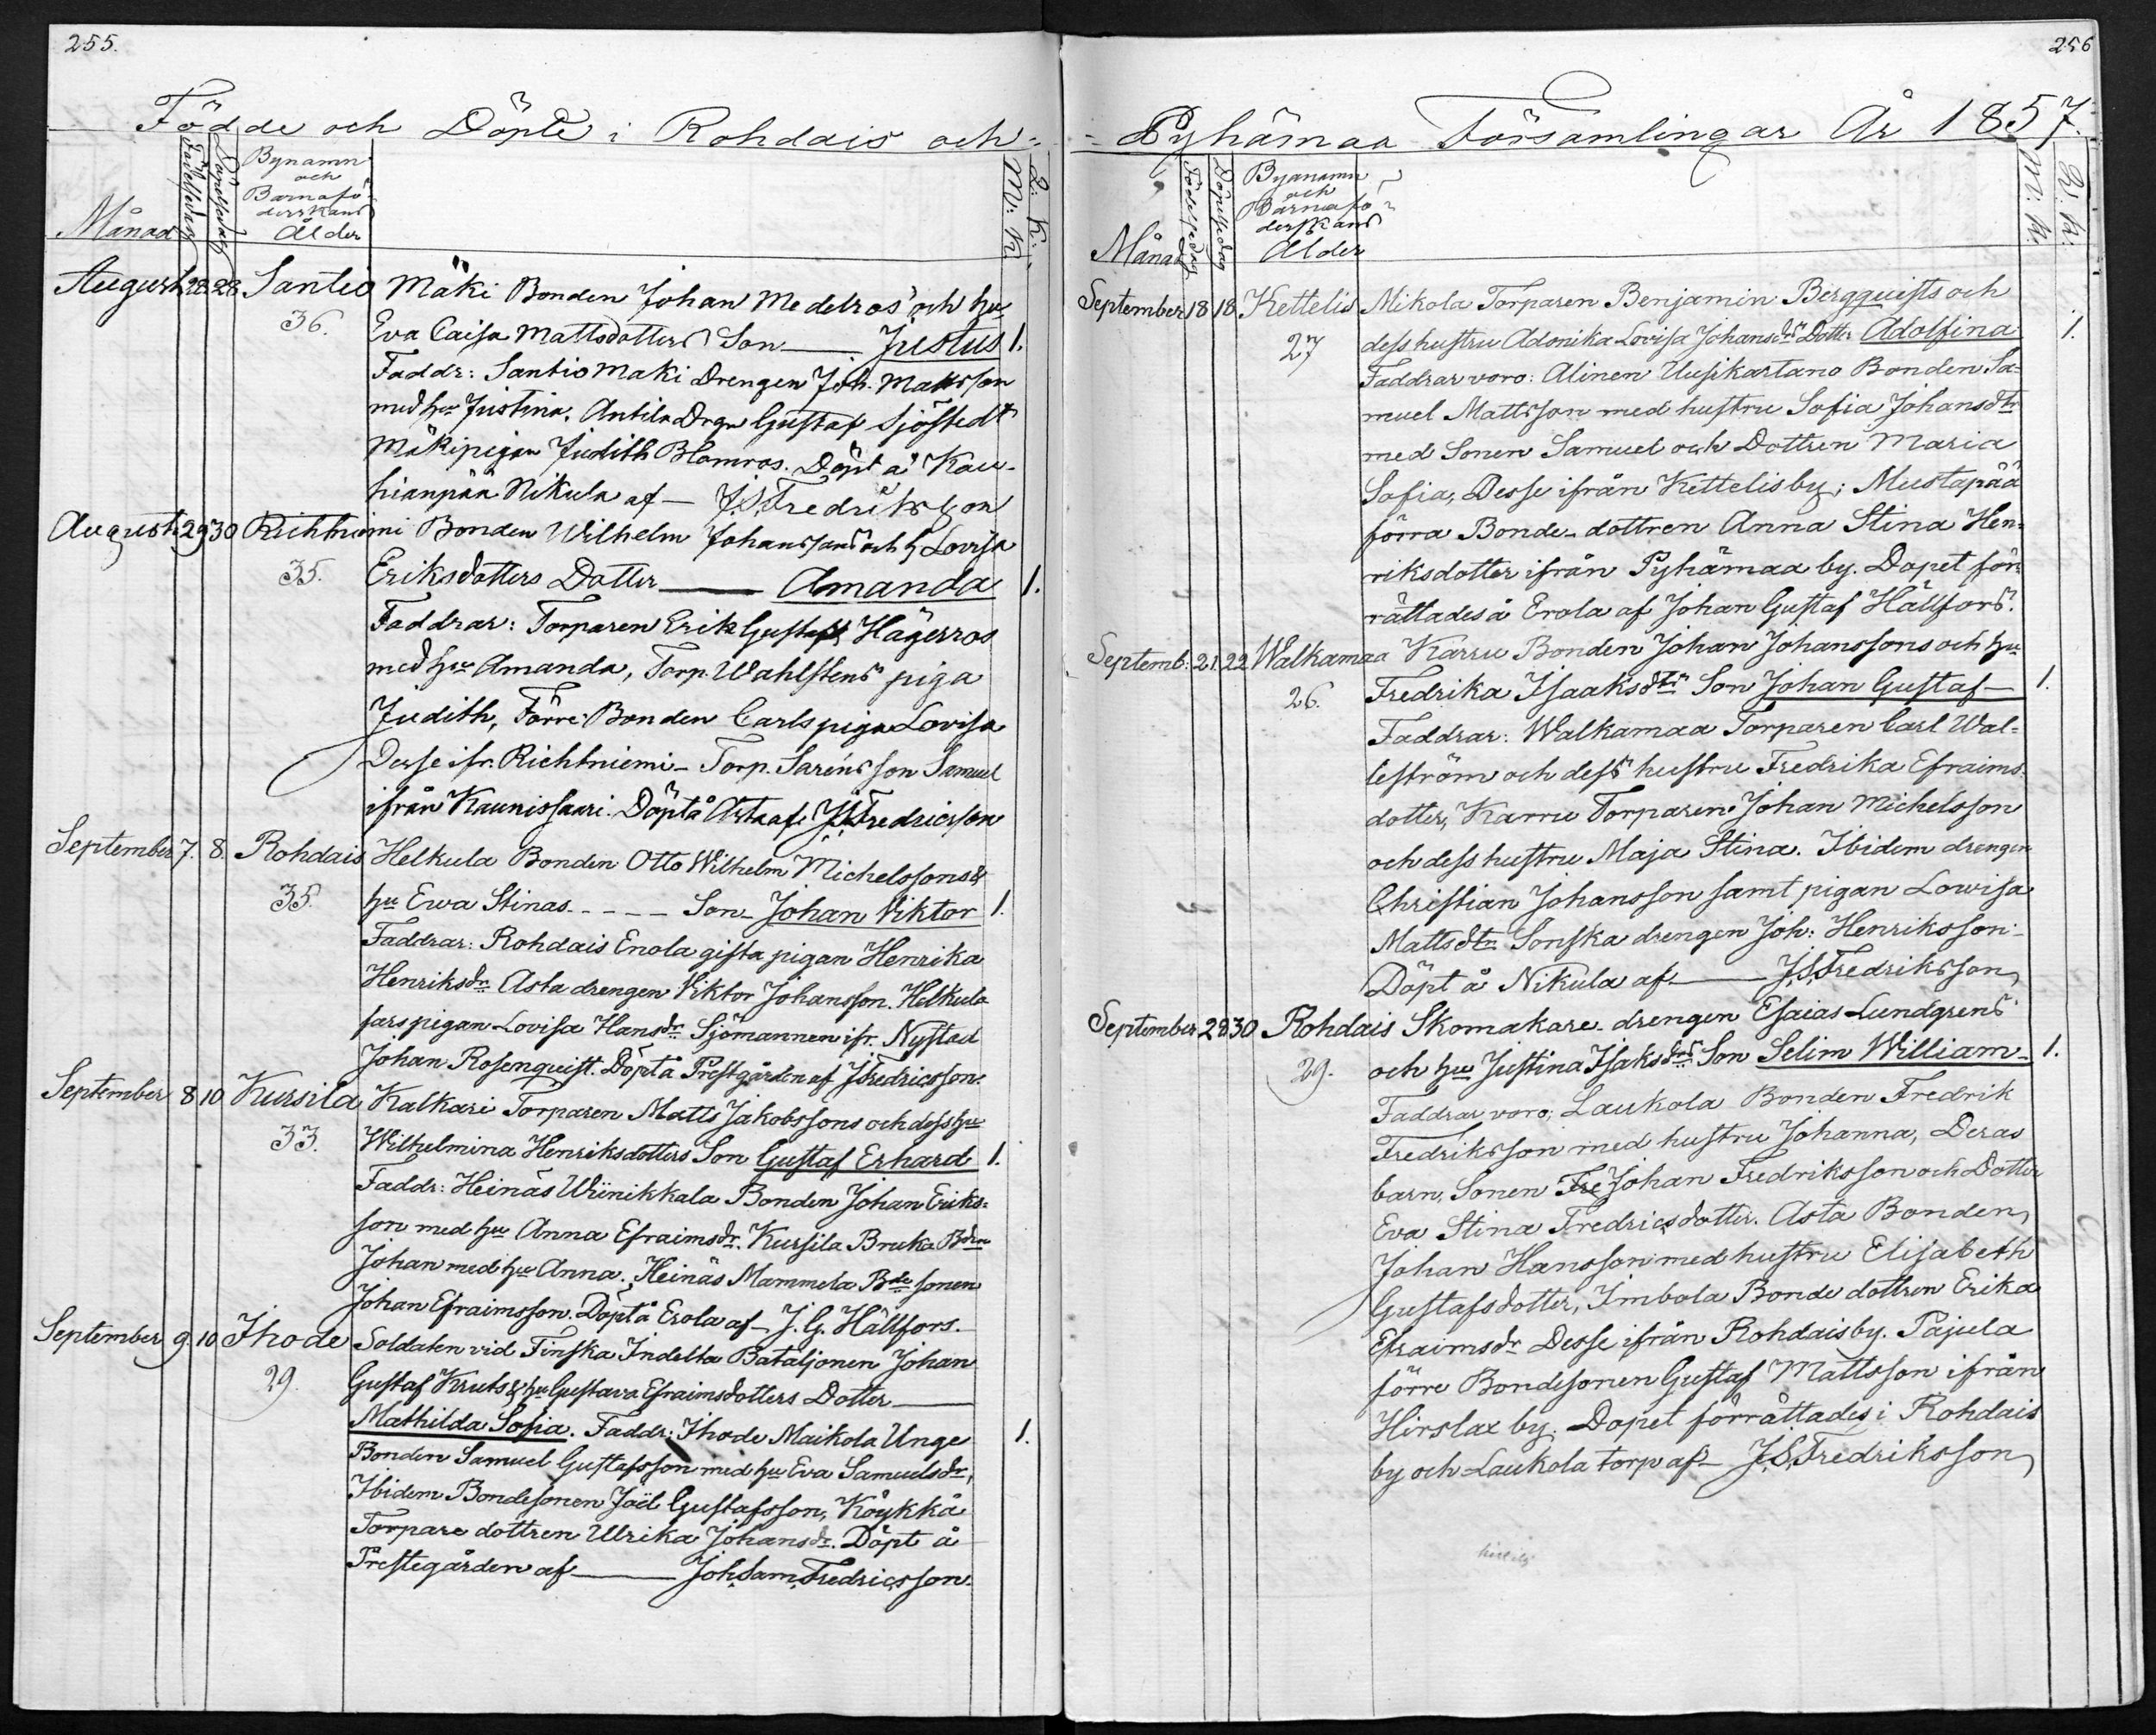 255.
Födde och Döpte i Rohdais och
Månad
Födelsedag
Döpelsedag
Bynamn
och
Barnafö-
derskans
Ålder
M: K.
Q: K.
August. 28 28 Santio Mäki Bonden Johan Medelros' och hu
36. Eva Caisa Mattsdotters Son — Justus 1.
Faddr: Santio Mäki Drengen Joh. Mattsson
med hu Justina. Antila Drgn Gustaf Sjöstedt
Mäkipigan Judith Blomros. Döpt å Kau-
hianpää Nikula af — J.S. Fredriksson
August. 29 30 Richtniemi Bonden Wilhelm Johanssons och h Lovisa
35. Eriksdotters Dotter — Amanda 1.
Faddrar: Torparen Erik Gustaf Hägerros
med hu Amanda, Torp. Wahlstens piga
Judith, Förre Bonden Carls piga Lovisa
Desse ifr. Richtniemi — Torp. Saréns son Samuel
ifrån Kaunissaari. Döpt å Asta af J.S. Fredricsson
September 7. 8. Rohdais Helkula Bonden Otto Wilhelm Michelssons &
35. hu Ewa Stinas - - - - Son — Johan Viktor 1.
Faddrar: Rohdais Enola gifta pigan Henrika
Henriksdr Asta drengen Viktor Johansson. Helkula
fars pigan Lovisa Hansdr Sjömannen ifr. Nystad
Johan Rosenquist. Döpt å Prestgården af J.S. Fredricsson.
September 8 10 Kursila Kalkari Torparen Matts Jakobssons och dess hu
33. Wilhelmina Henriksdotters Son Gustaf Erhard 1.
Faddr: Heinäs Wiinikkala Bonden Johan Eriks-
son med hu Anna Efraimsdr. Kursila Bruka Bdn
Johan med hu Anna. Heinäs Mammela Bde sonen
Johan Efraimsson. Döpt å Erola af — J. G. Hällfors.
September 9. 10 Ihode Soldaten vid Finska Indelta Bataljonen Johan
29. Gustaf Kruts & hu Gustava Efraimsdotters Dotter —
Mathilda Sofia. Faddr: Ihode Maikola Unge 1.
Bonden Samuel Gustafsson med hu Eva Samuelsdr,
Ibidem Bondesonen Joël Gustafsson, Köykkä
Torpare dottren Ulrika Johansdr. Döpt å
Prestegården af — Joh. Sam. Fredricsson.
256
Pyhämaa Församlingar År 1857.
Månad
Födelsedag
Döpelsedag
Byanamn
och
Barnafö-
derskans
Ålder
M: K.
Q: K.
September 18 18. Kettelis Mikola Torparen Benjamin Bergquists och
27 dess hustru Adonika Lovisa Johansdrs Dotter Adolfina 1.
Faddrar voro: Alinen Uusikartano Bonden Sa-
muel Mattsson med hustru Sofia Johansdtr
med Sonen Samuel och Dottren Maria
Sofia, Desse ifrån Kettelis by; Mustapää
förra Bonde-dottren Anna Stina Hen-
riksdotter ifrån Pyhämaa by. Dopet för-
rättades å Erola af Johan Gustaf Hällfors.
Septemb: 21. 22. Walkamaa Karru Bonden Johan Johanssons och hu
26. Fredrika Isaaksdtrs Son Johan Gustaf — 1.
Faddrar: Walkamaa Torparen Carl Wal-
leström och dess hustru Fredrika Efraims-
dotter, Karru Torparen Johan Michelsson
och dess hustru Maja Stina. Ibidem drengen
Christian Johansson samt pigan Lowisa
Mattsdtr Sonska drengen Joh: Henriksson.
Döpt å Nikula af — J.S. Fredriksson
September 28 30 Rohdais Skomakare-drengen Esaias Lundgrens
29. och hu Justina Isaksdrs Son Selim William — 1.
Faddrar voro; Laukola Bonden Fredrik
Fredriksson med hustru Johanna, Deras
barn, Sonen Fre Johan Fredriksson och Dotter
Eva Stina Fredricsdotter. Asta Bonden
Johan Hansson med hustru Elisabeth
Gustafsdotter, Imbola Bonde dottren Erika
Efraimsdr Desse ifrån Rohdais by. Pajula
förre Bondesonen Gustaf Mattsson ifrån
Hirslax by. Dopet förrättades i Rohdais
by och Laukola torp af — J.S. Fredriksson